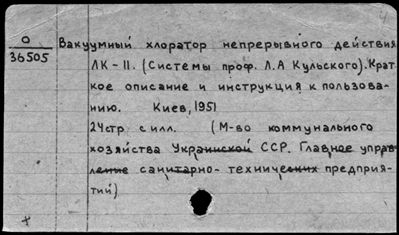 4
О
36505
Вакуумный хлоратор непрерывного действия
ЛК-11. (Системы проф. Л.А Кульского). Крат
кое описание и инструкция к пользова-
нию. Киев, 1951
24стр с илл. (М-во коммунального
хозяйства Украинской ССР. Главное управ
ление санитарно-технических предприя-
тий)
+